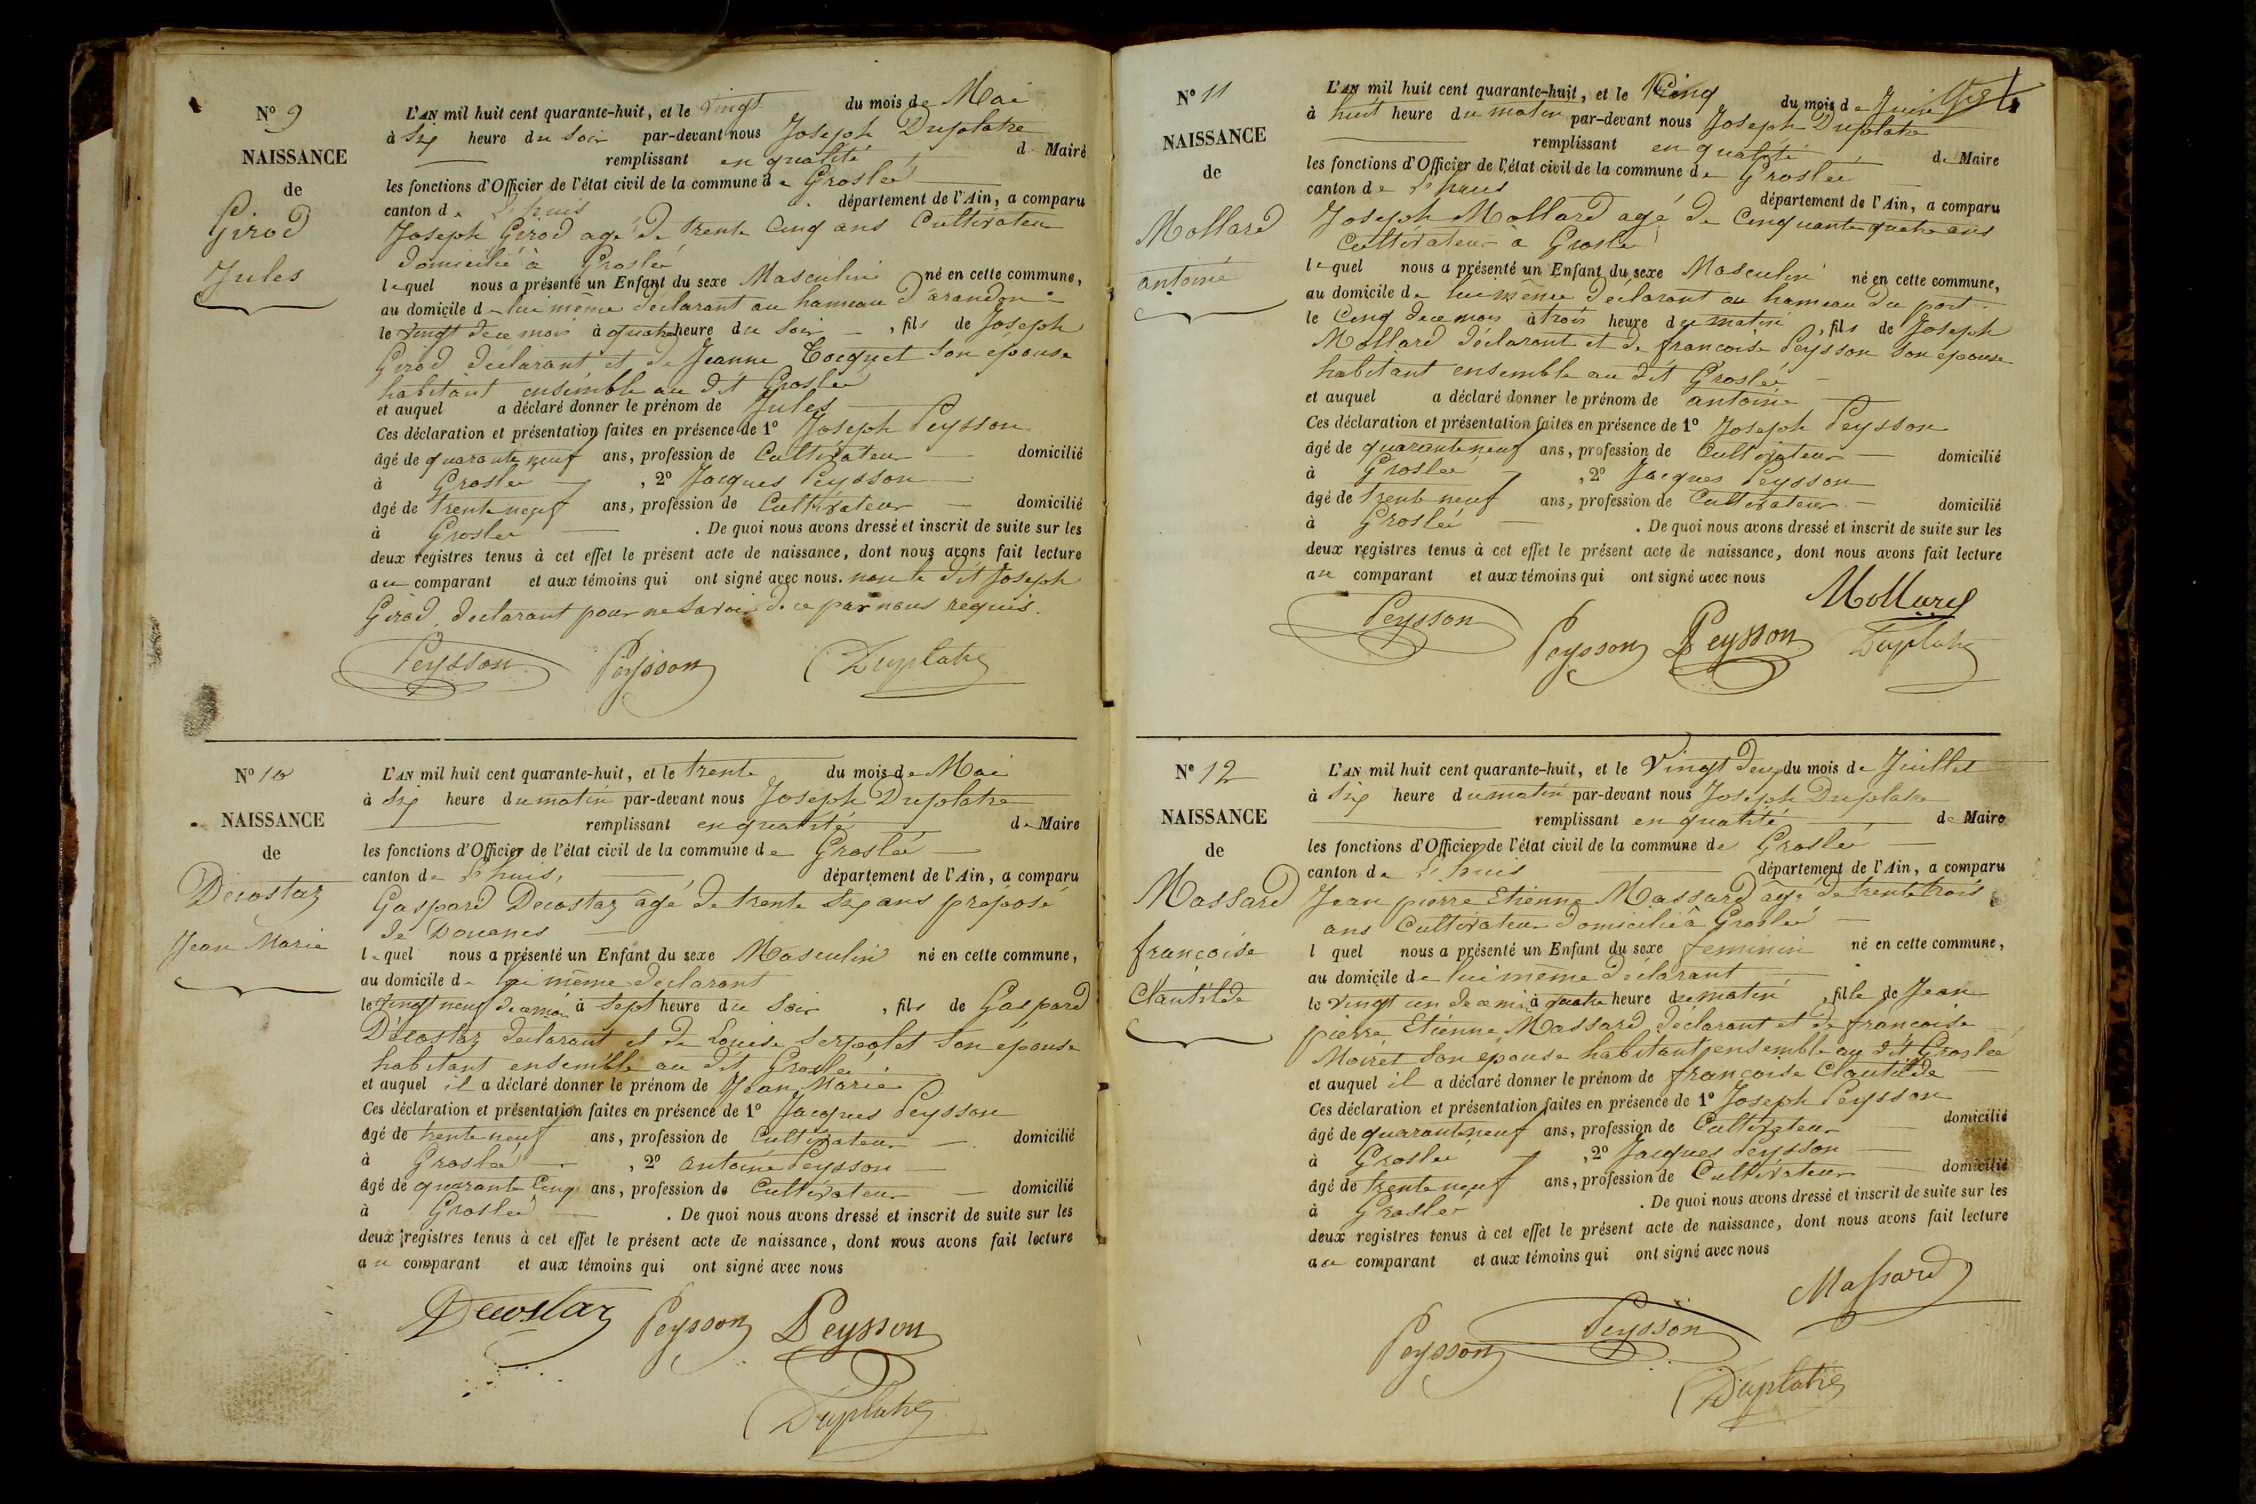 N° 9
NAISSANCE
de
Girod
Jules
L'AN mil huit cent quarante-huit, et le vingt du mois de Mai
à six heure du soir par-devant nous Joseph Duplatre
remplissant en qualité de Maire
les fonctions d'Officier de l'état civil de la commune de Groslée
canton de L'huis département de l'Ain, a comparu
Joseph Girod agé de trente cinq ans Cultivateur
domicilié à Groslée
lequel nous a présenté un Enfant du sexe Masculin né en cette commune,
au domicile de lui même déclarant au hameau d'arandon
le vingt de ce mois à quatre heure du soir, fils de Joseph
Girod déclarant et de Jeanne Cocquet son épouse
habitant ensemble au dit Groslée
et auquel a déclaré donner le prénom de Jules
Ces déclaration et présentation faites en présence de 1° Joseph Peysson
âgé de quarante neuf ans, profession de Cultivateur domicilié
à Groslée, 2° Jacques Peysson
âgé de trente neuf ans, profession de Cultivateur domicilié
à Groslée. De quoi nous avons dressé et inscrit de suite sur les
deux registres tenus à cet effet le présent acte de naissance, dont nous avons fait lecture
au comparant et aux témoins qui ont signé avec nous. non le dit Joseph
Girod, déclarant pour ne savoir de ce par nous requis.
Peysson Peysson Duplatre
N° 10
NAISSANCE
de
Decostaz
Jean Marie
L'AN mil huit cent quarante-huit, et le trente du mois de Mai
à six heure du matin par-devant nous Joseph Duplatre
remplissant en qualité de Maire
les fonctions d'Officier de l'état civil de la commune de Groslée
canton de L'huis, département de l'Ain, a comparu
Gaspard Decostaz âgé de trente six ans préposé
de Douanes
lequel nous a présenté un Enfant du sexe Masculin né en cette commune,
au domicile de lui même declarant
le vingt neuf de ce mois à sept heure du soir, fils de Gaspard
Décostaz declarant et de Louise Serpolet son épouse
habitant ensemble au dit Groslée
et auquel il a déclaré donner le prénom de Jean Marie
Ces déclaration et présentation faites en présence de 1° Jacques Peysson
âgé de trente neuf ans, profession de Cultivateur domicilié
à Groslée, 2° antoine Peysson
âgé de quarante cinq ans, profession de Cultivateur domicilié
à Groslée. De quoi nous avons dressé et inscrit de suite sur les
deux registres tenus à cet effet le présent acte de naissance, dont nous avons fait lecture
au comparant et aux témoins qui ont signé avec nous
Decostaz Peysson Peysson
Duplatre
N° 11
NAISSANCE
de
Mollard
antoine
L'AN mil huit cent quarante-huit, et le Cinq du mois de Juin
à huit heure du matin par-devant nous Joseph Duplatre
remplissant en qualité de Maire
les fonctions d'Officier de l'état civil de la commune de Groslée
canton de L'huis département de l'Ain, a comparu
Joseph Mollard agé de Cinquante quatre ans
Cultivateur à Groslée
lequel nous a présenté un Enfant du sexe Masculin né en cette commune,
au domicile de lui même déclarant au hameau du port
le Cinq de ce mois à trois heure du matin, fils de Joseph
Mollard déclarant et de francoise Peysson son epouse
habitant ensemble au dit Groslée
et auquel a déclaré donner le prénom de antoine
Ces déclaration et présentation faites en présence de 1° Joseph Peysson
âgé de quarante neuf ans, profession de Cultivateur domicilié
à Groslée, 2° Jacques Peysson
âgé de trente neuf ans, profession de Cultivateur domicilié
à Groslée. De quoi nous avons dressé et inscrit de suite sur les
deux registres tenus à cet effet le présent acte de naissance, dont nous avons fait lecture
au comparant et aux témoins qui ont signé avec nous
Mollard
Peysson Peysson Peysson Duplatre
N° 12
NAISSANCE
de
Massard
françoise
Clautilde
L'AN mil huit cent quarante-huit, et le Vingt deux du mois de Juillet
à six heure du matin par-devant nous Joseph Duplatre
remplissant en qualité de Maire
les fonctions d'Officier de l'état civil de la commune de Groslée
canton de L'huis département de l'Ain, a comparu
Jean pierre Etienne Massard âgé de trente trois
ans Cultivateur domicilié à Groslée
l quel nous a présenté un Enfant du sexe feminin né en cette commune,
au domicile de lui même déclarant
le vingt un de ce mois à quatre heure du matin, fille de Jean
pierre Etienne Massard déclarant et de françoise
Moiret son épouse habitant ensemble au dit Groslée
et auquel il a déclaré donner le prénom de françoise Clautilde
Ces déclaration et présentation faites en présence de 1° Joseph Peysson
âgé de quarante neuf ans, profession de Cultivateur domicilié
à Groslée, 2° Jacques Peysson
âgé de trente neuf ans, profession de Cultivateur domicilié
à Groslée. De quoi nous avons dressé et inscrit de suite sur les
deux registres tenus à cet effet le présent acte de naissance, dont nous avons fait lecture
au comparant et aux témoins qui ont signé avec nous
Massard
Peysson Peysson
Duplatre